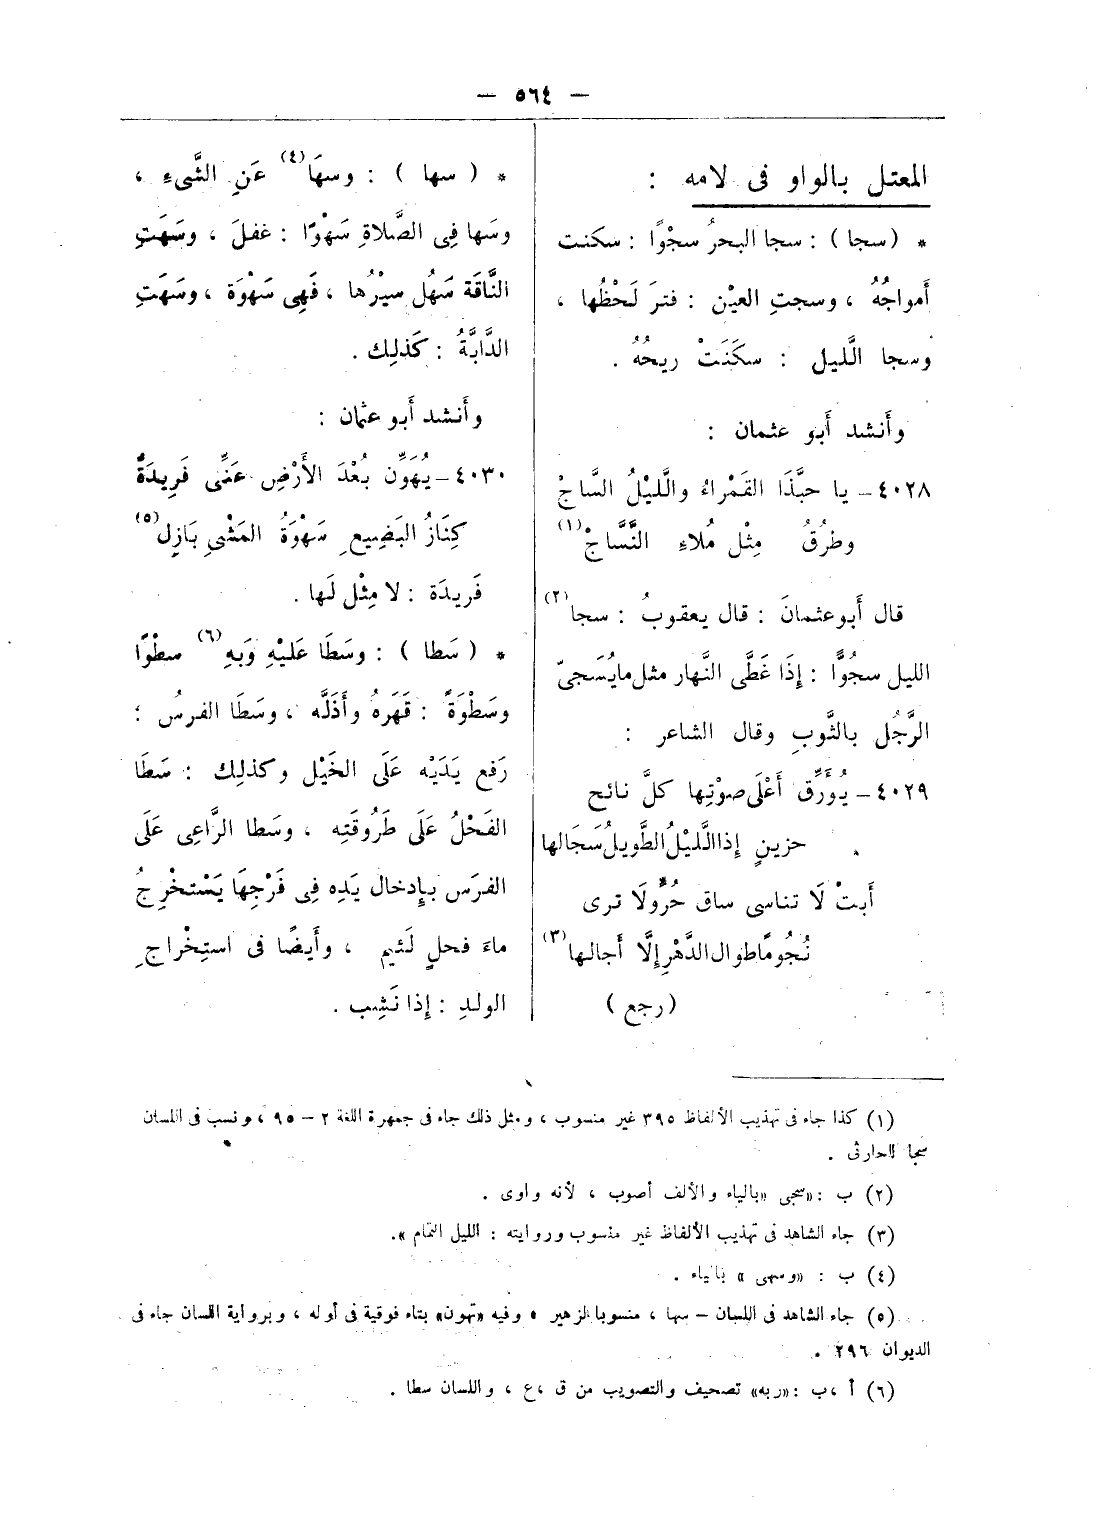 — ٥٦٤ —
المعتل بالواو فى لامه :
* ( سجا ) : سجا البحرُ سجْوًا : سكنت
أمواجُهُ ، وسجتِ العيْن : فترَ لَحْظُها ،
وسجا الَّليل : سكَنَتْ ريحُهُ .
وأَنشد أَبو عثمان :
٤٠٢٨ – يا حبَّذَا القَمْراءُ والَّليْلُ السَّاجْ
وطرُقُ مِثْل مُلاءِ النَّسَّاجْ (١)
قال أَبوعثمانَ : قال يعقوبُ : سجا (٢)
الليل سجُوًّا : إِذَا غَطَّى النَّهار مثل مايُسَجىّ
الرَّجُل بالثَّوبِ وقال الشاعر :
٤٠٢٩ – يُوَرِّق أَعْلَى صوْتِها كلَّ نائح
حزينٍ إِذا الَّليْلُ الطَّويلُ سَجَالها
أَبتْ لَا تناسى ساق حُرٍّولَا ترى
نُجُومًا طوال الدَّهْرِ إِلَّا أَجالها (٣)
( رجع )
* ( سها ) : وسهَا (٤) عَنِ الشَّىءِ ،
وسَها فِى الصَّلاةِ سَهْوًا : غفلَ ، وسَهَتِ
النَّاقَة سَهُل سيْرُها ، فَهِى سَهْوَة ، وسَهَتِ
الدَّابَّةُ : كَذلِك .
وأَنشد أَبو عثمان :
٤٠٣٠ – يُهَوِّن بُعْدَ الأَرْضِ عَنِّى فَرِيدَةٌ
كِنَازُ البَضِيع ِ سَهْوَةُ المَشْىِ بَازِلِ (٥)
فَريدَة : لا مِثْل لَها .
* ( سَطا ) : وسَطَا عَليْهِ وَبهِ (٦) سطْوًا
وسَطْوَةً : قَهَرهُ وأَذَلَّه ، وسَطَا الفرسُ :
رَفع يَدَيْه عَلَى الخَيْل وكذلِك : سَطَا
الفَحْلُ عَلَى طَرُوقَتِه ، وسَطا الرَّاعِى عَلَى
الفرَس بإِدخال يَدِه فِى فَرْجِهَا يَسْتخْرِجُ
ماءَ فحلٍ لَئيم ، وأَيضًا فى استِخْراج ِ
الولدِ : إِذا نَشِب .
(١) كذا جاء فى تهذيب الألفاظ ٣٩٥ غير منسوب ، ومثل ذلك جاء فى جمهرة اللغة ٢ – ٩٥ ، ونسب فى اللسان
سجا للحارثى .
(٢) ب : «سجى «بالياء والألف أصوب ، لأنه واوى .
(٣) جاء الشاهد فى تهذيب الألفاظ غير منسوب وروايته : الليل التمام ».
(٤) ب : «وسهى » بالياء .
(٥) جاء الشاهد فى اللسان – سها ، منسوبا لزهير ، وفيه «تهون» بتاء فوقية فى أوله ، وبرواية اللسان جاء فى
الديوان ٢٩٦ .
(٦) أ ،ب : «ربه» تصحيف والتصويب من ق ،ع ، واللسان سطا .